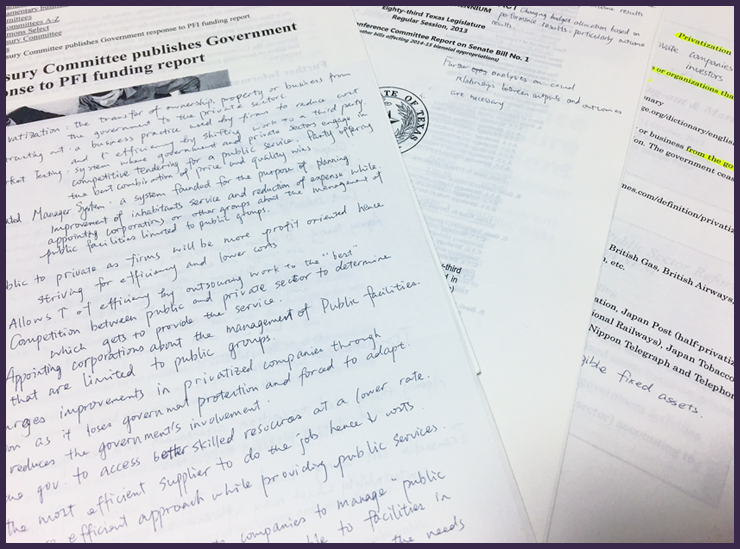 mmittees
ommittees A-Z
mmons Select
sury Committee
ry Committee publishes Government response to PFI funding report
sury Committee publishes Government
onse to PFI funding report
vatization : the transfer of ownership, property or business from
the government to the private sector
a business practice used by firms to reduce cost
and ↑ efficiency by shifting work to a third party.
rket Testing : system where government and private sectors engage in
competitive tendering for a public service. Party offering
the best combination of price and quality wins.
ated Manager System : a system founded for the purpose of planning
improvement of inhabitants service and reduction of expense while
appointing corporations or other groups about the management of
public facilities limited to public groups.
blic to private as firms will be more profit oriented hence
striving for efficiency and lower costs
Allows ↑ of efficiency by outsourcing work to the "best"
Competition between public and private sector to determine
which gets to provide the service.
Appointing corporations about the management of Public facilities.
that are limited to public groups.
urges improvements in privatized companies through
on as it loses government protection and forced to adapt.
reduces the government's involvement.
the gov. to access better skilled resources at a lower rate.
the most efficient supplier to do the job hence ↓ costs.
efficient approach while providing public services.
companies to manage public
to facilities in
the needs
Eighty-third Texas Legislature
Regular Session, 2013
onference Committee Report on Senate Bill No. 1
ther bills affecting 2014-15 biennial appropriations)
Changing budget allocation based on
performance results - particularly outcome
results.
Further analyses on causal
relationships between outputs and outcomes
are necessary
TE OF TEXAS
-third
d in
)
Privatization
companies
investors
or organizations tha
mary
ge.org/dictionary/english
or business from the go
on. The government ceas
nes.com/definition/privatiz
British Gas, British Airways,
, etc.
ation, Japan Post (half-privatiz
ional Railways), Japan Tobacco
Nippon Telegraph and Telephon
gible fixed assets.